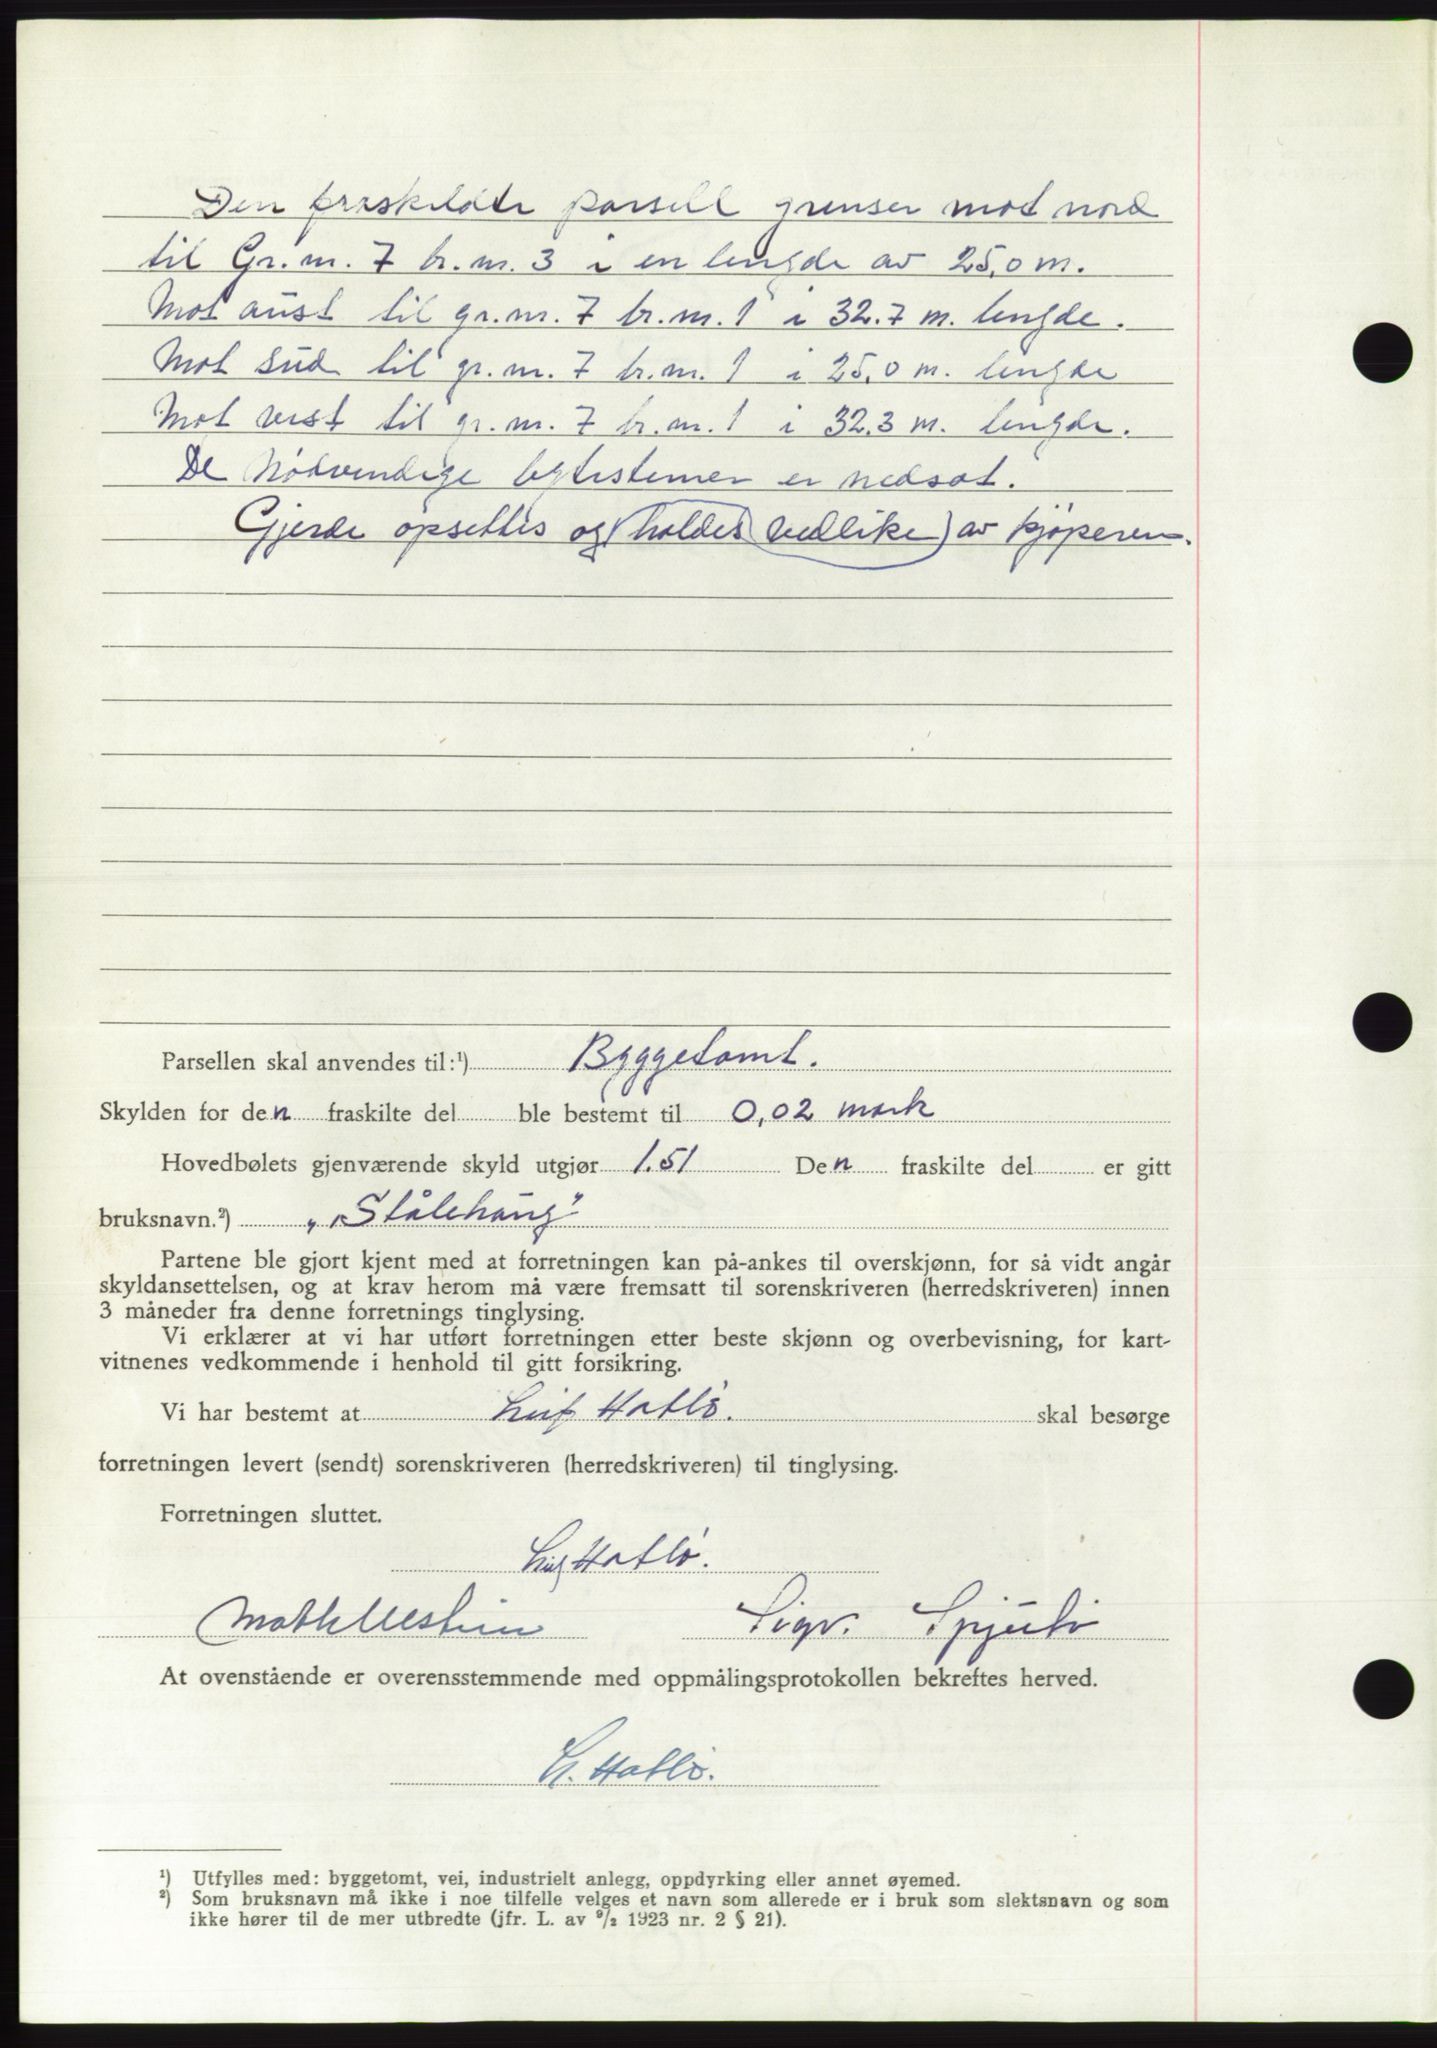 Den fraskildte parsell grenser mot nord
til Gr.nr. 7 br.nr. 3 i en lengde av 25,0 m.
Mot aust til gr.nr. 7 br.nr. 1 i 32.7 m. lengde.
Mot sud til gr.nr. 7 br.nr. 1 i 25,0 m. lengde
Mot vest til gr.nr. 7 br.nr. 1 i 32.3 m. lengde.
De nødvendige bytesteiner er nedsat.
Gjerde opsettes og (holdes vedlike) av kjøperen.
Parsellen skal anvendes til:¹) Byggetomt.
Skylden for den fraskilte del ble bestemt til 0,02 mark
Hovedbølets gjenværende skyld utgjør 1.51 Den fraskilte del er gitt
bruksnavn.²) „Stålehaug"
Partene ble gjort kjent med at forretningen kan på-ankes til overskjønn, for så vidt angår
skyldansettelsen, og at krav herom må være fremsatt til sorenskriveren (herredskriveren) innen
3 måneder fra denne forretnings tinglysing.
Vi erklærer at vi har utført forretningen etter beste skjønn og overbevisning, for kart-
vitnenes vedkommende i henhold til gitt forsikring.
Vi har bestemt at Leif Hatlø. skal besørge
forretningen levert (sendt) sorenskriveren (herredskriveren) til tinglysing.
Forretningen sluttet.
Leif Hatlø.
Sigv.
At ovenstående er overensstemmende med oppmålingsprotokollen bekreftes herved.
L. Hatlø.
¹) Utfylles med: byggetomt, vei, industrielt anlegg, oppdyrking eller annet øyemed.
²) Som bruksnavn må ikke i noe tilfelle velges et navn som allerede er i bruk som slektsnavn og som
ikke hører til de mer utbredte (jfr. L. av ⁹/₂ 1923 nr. 2 § 21).